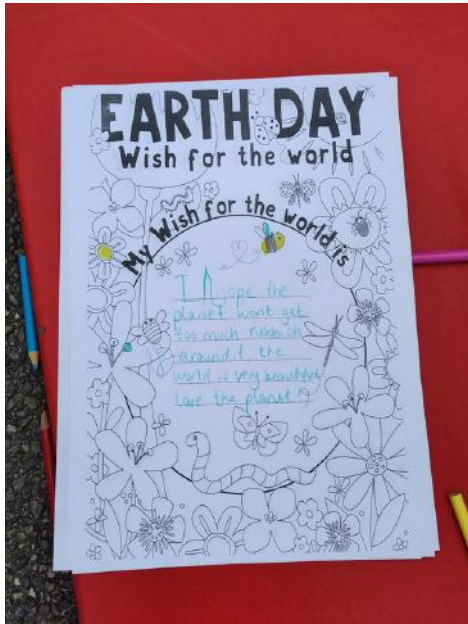 EARTH DAY
Wish for the world
My Wish for the world is
I hope the
planet wont get
too much rubbich
around it the
world is very beautiful
love the planet